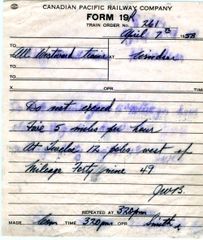 CANADIAN PACIFIC RAILWAY COMPANY
FORM 19
TRAIN ORDER NO. 261
April 7th 1958
TO All Westward trains AT
TO AT
X OPR. TIME
Do not exceed
Five 5 miles per hour
At Twelve 12 poles west of
Mileage forty nine 49
JWB.
REPEATED AT 320PM
MADE Com TIME 320pm OPR Smith